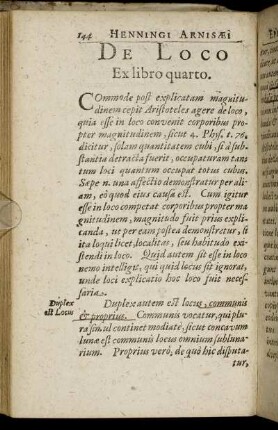 144 HENNINGI ARNISÆI
DE LOCO
Ex libro quarto.
COmmode post explicatam magnitu-
dinem cepit Aristoteles agere de loco,
quia esse in loco convenit corporibus pro-
pter magnitudinem, sicut 4. Phys. t. 76.
dicitur, solam quantitatem cubi, si à sub-
stantia detracta fuerit, occupaturam tan-
tum loci quantum occupat totus cubus.
Sæpe n. una affectio demonstratur per ali-
am, eò quod ejus causa est. Cum igitur
esse in loco competat corporibus propter ma
gnitudinem, magnitudo fuit prius expli-
canda, ut per eam postea demonstretur, si
ita loqui licet, localitas, seu habitudo exi-
stendi in loco. Quid autem sit esse in loco
nemo intelligit, qui quid locus sit ignorat,
unde loci explicatio hoc loco fuit neces-
saria.
Duplex
est Locus
Duplex autem est locus, communis
& proprius. Communis vocatur, qui plu-
ra continet mediatè, sicut concavum
lunæ est communis locus omnium sublunarium.
Proprius verò, de quo hîc disputa-
tur,